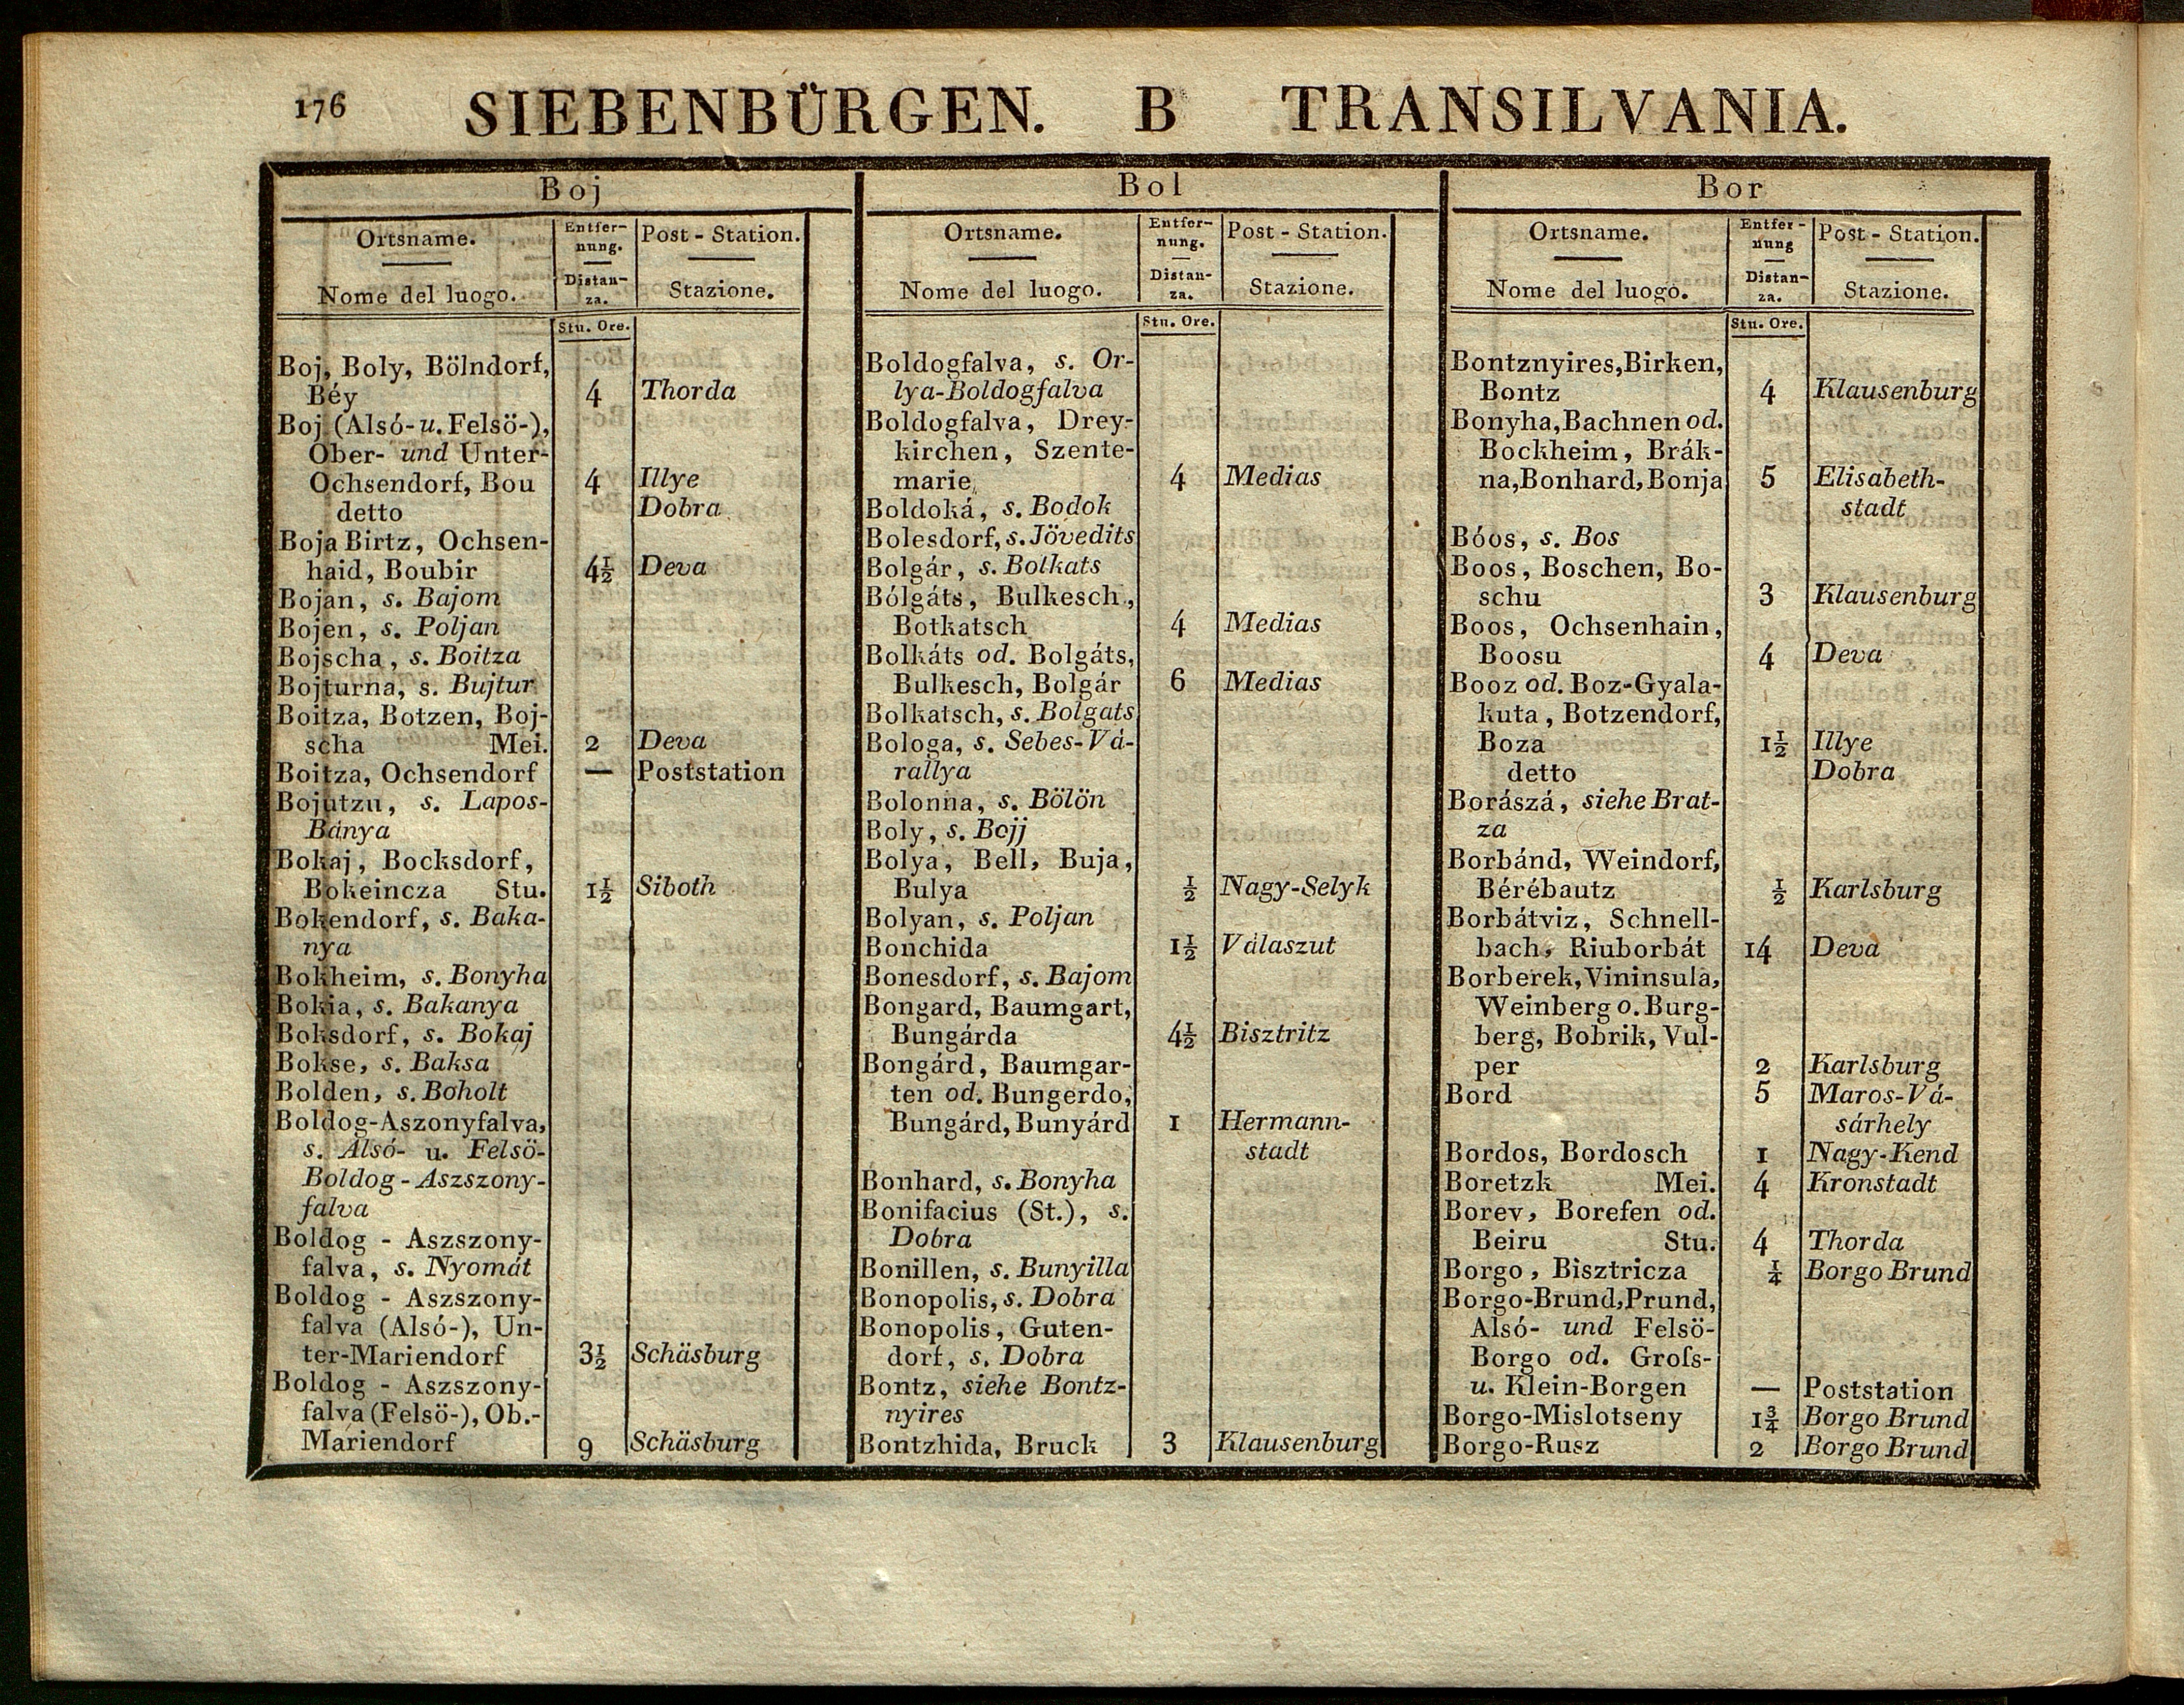 176 SIEBENBÜRGEN. B TRANSILVANIA.
Boj
Ortsname. Entfer- Post - Station.
nung.
Nome del luogo. Distan- Stazione.
za.
Stu. Ore.
Boj, Boly, Bölndorf,
Béy 4 Thorda
Boj (Alsó- u. Felsö-),
Ober- und Unter-
Ochsendorf, Bou 4 Illye
detto Dobra
Boja Birtz, Ochsen-
haid, Boubir 4½ Deva
Bojan, s. Bajom
Bojen, s. Poljan
Bojscha, s. Boitza
Bojturna, s. Bujtur
Boitza, Botzen, Boj-
scha Mei. 2 Deva
Boitza, Ochsendorf — Poststation
Bojutzu, s. Lapos-
Bánya
Bokaj, Bocksdorf,
Bokeincza Stu. 1½ Siboth
Bokendorf, s. Baka-
nya
Bokheim, s. Bonyha
Bokia, s. Bakanya
Boksdorf, s. Bokaj
Bokse, s. Baksa
Bolden, s. Boholt
Boldog-Aszonyfalva,
s. Alsó- u. Felsö-
Boldog - Aszszony-
falva
Boldog - Aszszony-
falva, s. Nyomát
Boldog - Aszszony-
falva (Alsó-), Un-
ter-Mariendorf 3½ Schäsburg
Boldog - Aszszony-
falva (Felsö-), Ob.-
Mariendorf 9 Schäsburg
Bol
Ortsname. Entfer- Post - Station.
nung.
Nome del luogo. Distan- Stazione.
za.
Stu. Ore.
Boldogfalva, s. Or-
lya-Boldogfalva
Boldogfalva, Drey-
kirchen, Szente-
marie 4 Medias
Boldoká, s. Bodok
Bolesdorf, s. Jövedits
Bolgár, s. Bolkats
Bólgáts, Bulkesch,
Botkatsch 4 Medias
Bolkáts od. Bolgáts,
Bulkesch, Bolgár 6 Medias
Bolkatsch, s. Bolgats
Bologa, s. Sebes-Vá-
rallya
Bolonna, s. Bölön
Boly, s. Bojj
Bolya, Bell, Buja,
Bulya ½ Nagy-Selyk
Bolyan, s. Poljan
Bonchida 1½ Válaszut
Bonesdorf, s. Bajom
Bongard, Baumgart,
Bungárda 4½ Bisztritz
Bongárd, Baumgar-
ten od. Bungerdo,
Bungárd, Bunyárd 1 Hermann-
stadt
Bonhard, s. Bonyha
Bonifacius (St.), s.
Dobra
Bonillen, s. Bunyilla
Bonopolis, s. Dobra
Bonopolis, Guten-
dorf, s. Dobra
Bontz, siehe Bontz-
nyires
Bontzhida, Bruck 3 Klausenburg
Bor
Ortsname. Entfer- Post - Station.
nung
Nome del luogo. Distan- Stazione.
za.
Stu. Ore.
Bontznyires, Birken,
Bontz 4 Klausenburg
Bonyha, Bachnen od.
Bockheim, Brák-
na, Bonhard, Bonja 5 Elisabeth-
stadt
Bóos, s. Bos
Boos, Boschen, Bo-
schu 3 Klausenburg
Boos, Ochsenhain,
Boosu 4 Deva
Booz od. Boz-Gyala-
kuta, Botzendorf,
Boza 1½ Illye
detto Dobra
Borászá, siehe Brat-
za
Borbánd, Weindorf,
Bérébautz ½ Karlsburg
Borbátviz, Schnell-
bach, Riuborbát 14 Deva
Borberek, Vininsula,
Weinberg o. Burg-
berg, Bobrik, Vul-
per 2 Karlsburg
Bord 5 Maros-Vá-
sárhely
Bordos, Bordosch 1 Nagy-Kend
Boretzk Mei. 4 Kronstadt
Borev, Borefen od.
Beiru Stu. 4 Thorda
Borgo, Bisztricza ¼ Borgo Brund
Borgo-Brund, Prund,
Alsó- und Felsö-
Borgo od. Groſs-
u. Klein-Borgen — Poststation
Borgo-Mislotseny 1¾ Borgo Brund
Borgo-Rusz 2 Borgo Brund